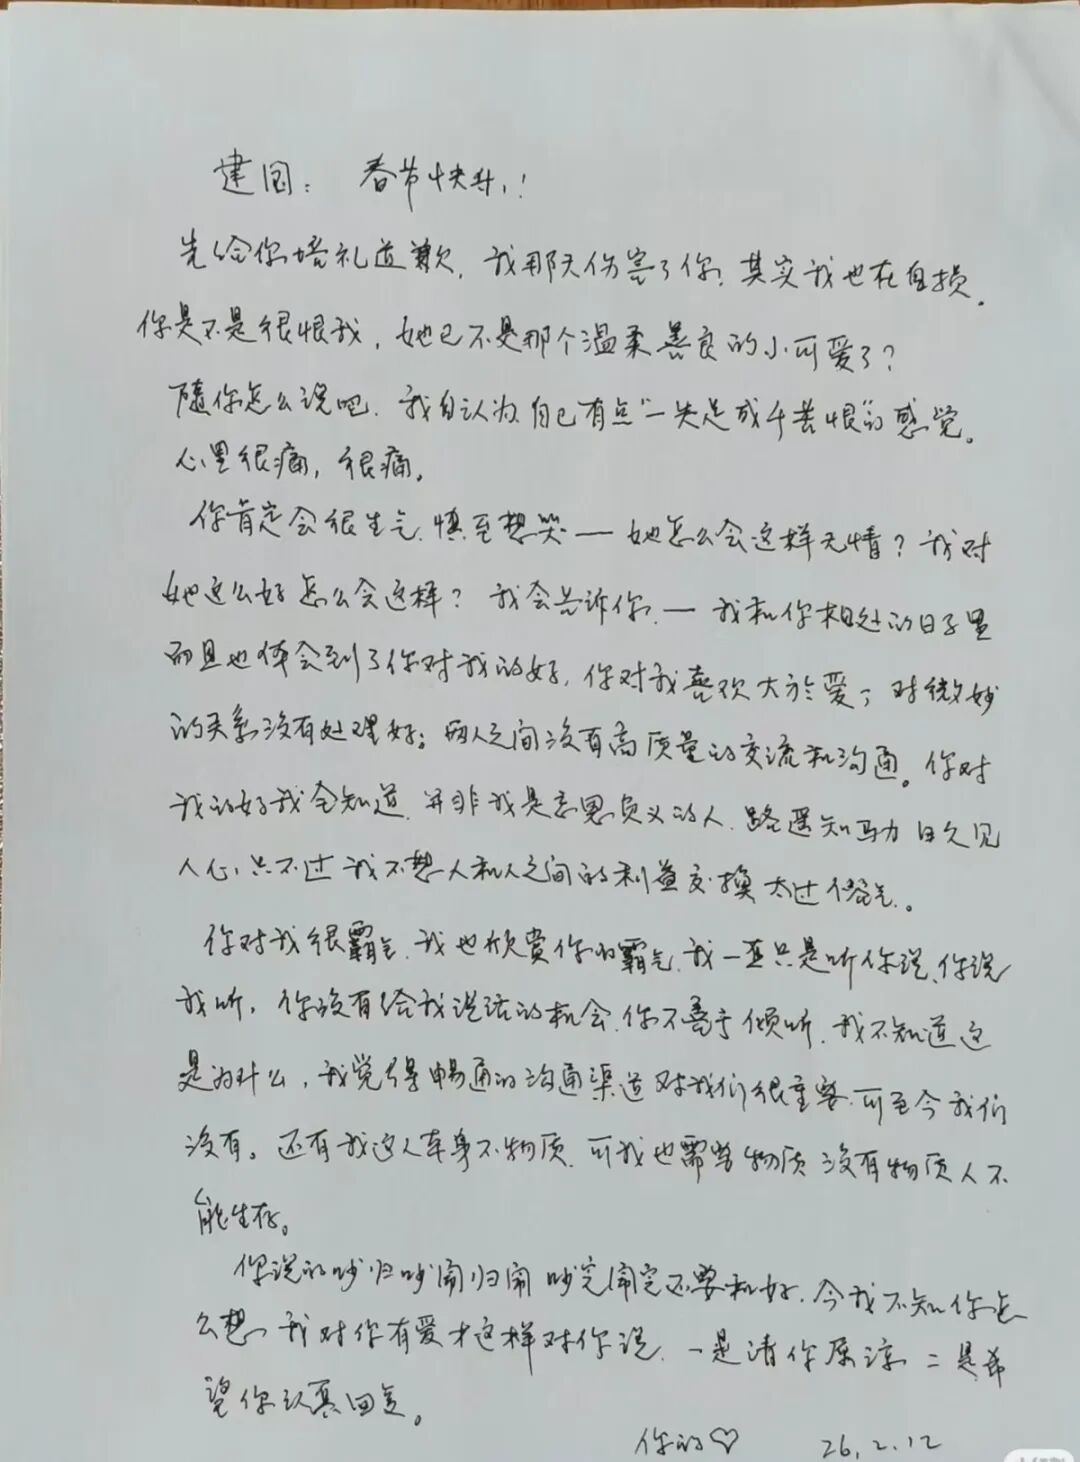 建国：春节快乐！
先给你培礼道歉，我那天伤害了你，其实我也在自损。
你是不是很恨我，她已不是那个温柔善良的小可爱了？
随你怎么说吧，我自认为自己有点“一失足成千苦恨”的感觉。
心里很痛，很痛。
你肯定会很生气，慎至想哭——她怎么会这样无情？我对
她这么好怎么会这样？我会告诉你——我和你相处的日子里
而且也体会到了你对我的好，你对我喜欢大于爱，对微妙
的关系没有处理好；两人之间没有高质量的交流和沟通。你对
我的好我全知道，并非我是忘恩负义的人，路遥知马力日久见
人心，只不过我不想人和人之间的利益交换太过俗气。
你对我很霸气，我也欣赏你的霸气，我一直只是听你说，你说
我听，你没有给我说话的机会，你不善于倾听，我不知道这
是为什么，我觉得畅通的沟通渠道对我们很重要，可至今我们
没有。还有我这人本身不物质，可我也需学物质没有物质人不
能生存。
你说的吵归吵闹归闹吵完闹完还要和好，今我不知你怎
么想，我对你有爱才这样对你说，一是请你原谅，二是希
望你认真回复。
你的♡ 26.2.12